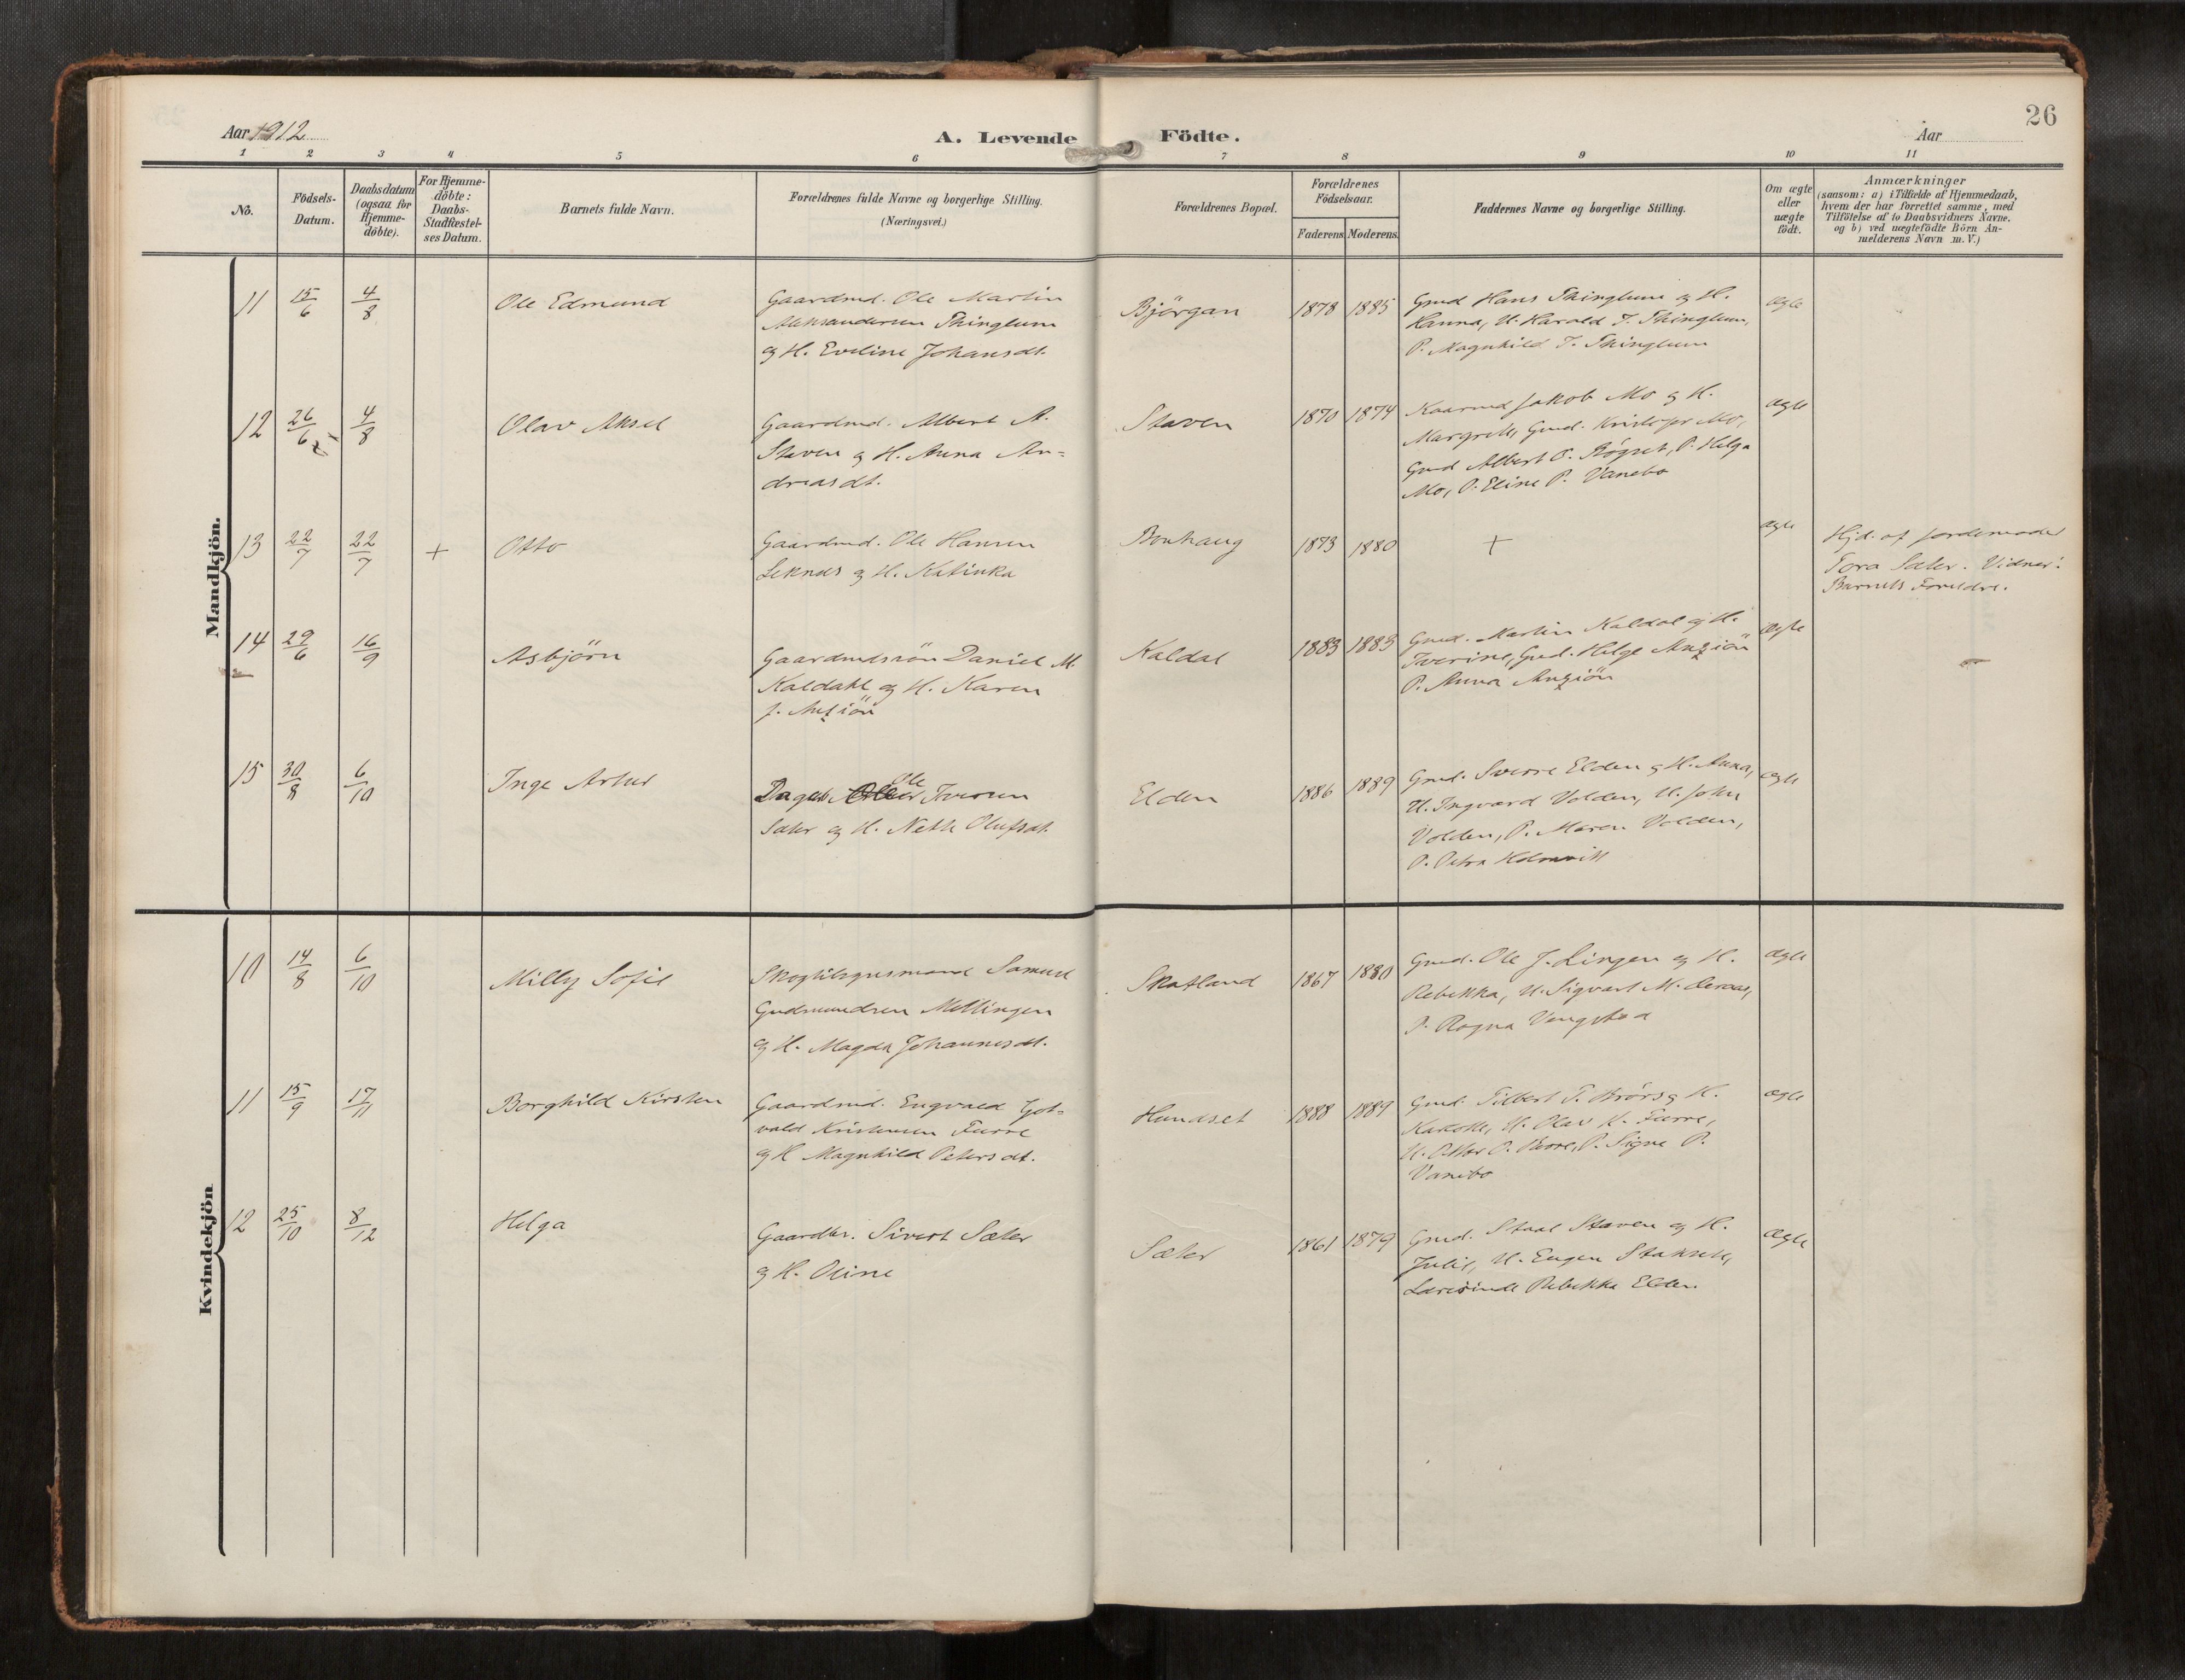 26
Aar 1912
A. Levende Födte.
Aar
1 2 3 4 5 6 7 8 9 10 11
No.
Födsels-
Datum.
Daabsdatum
(ogsaa for
Hjemme-
döbte).
For Hjemme-
döbte:
Daabs-
Stadfæstel-
ses Datum.
Barnets fulde Navn.
Forældrenes fulde Navne og borgerlige Stilling.
(Næringsvei.)
Forældrenes Bopæl.
Forældrenes
Födselsaar.
Faderens. Moderens.
Faddernes Navne og borgerlige Stilling.
Om ægte
eller
uægte
födt.
Anmærkninger
(saasom: a) i Tilfælde af Hjemmedaab,
hvem der har forrettet samme, med
Tilföielse af to Daabsvidners Navne.
og b) ved uægtefödte Börn An-
melderens Navn m. V.)
Mandkjön.
11 15/6 4/8 Ole Edmund
Gaardmd. Ole Martin
Aleksandersen Thinglum
og H. Eveline Johansdt.
Björgan 1878 1885
Gmd Hans Thinglum og H.
Hanna, U. Harald T. Thinglum,
P. Magnhild T. Thinglum
ægte
12 26/6 4/8 Olav Aksel
Gaardmd. Albert A.
Staven og H. Anna An-
dreasdt.
Staven 1870 1874
Kaarmd Jakob Mo og H.
Margrete, Gmd. Kristofer Mo,
Gmd Albert P. , P. Helga
Mo, P. Eline P. Vanebo
ægte
13 22/7 22/7 + Otto
Gaardmd. Ole Hansen
Leknes og H. Katinka
Bonhaug 1873 1880
+
ægte
Hjd. af Jordemoder
Tora Sæter. Vidner:
Barnets Forældre.
14 29/6 16/9 Asbjörn
Gaardmdssön Daniel M.
Kaldahl og H. Karen
J. Anziön
Kaldal 1883 1883
Gmd. Martin Kaldal og H.
Iverine, Gmd. Helge Anziön
P. Anna Anziön
ægte
15 30/8 6/10 Inge Artur
Dagarb. Ole Iversen
Sæter og H. Nette Olufsdt.
Elden 1886 1889
Gmd. Sverre Elden og H. Anna,
U. Ingvard Volden, U. John
Volden, P. Maren Volden,
P. Petra
ægte
Kvindekjön
10 14/8 6/10 Milly Sofie
Skogtilsynsmand Samuel
Gudmundsen Mellingen
og H. Magda Johannesdt.
Skatland 1867 1880
Gmd. Ole J. Lingen og H.
Rebekka, U. Sigvart M. Aeraas,
P. Ragna Vengstad
ægte
11 15/9 17/11 Borghild Kirsten
Gaardmd. Engvald Got-
vald Kristensen Furre
og H Magnhild Petersdt.
Hundset 1888 1889
Gmd. Tilbert T. Brörs og H.
, U. Olav K. Furre,
U. P. , P. Signe P.
Vanebo
ægte
12 25/10 8/12 Helga
Gaardbr. Sivert Sæter
og H. Oline
Sæter 1861 1879
Gmd. Staal Staven og H.
Julie, U. Eugen ,
Lærerinde Rebekka Elden.
ægte